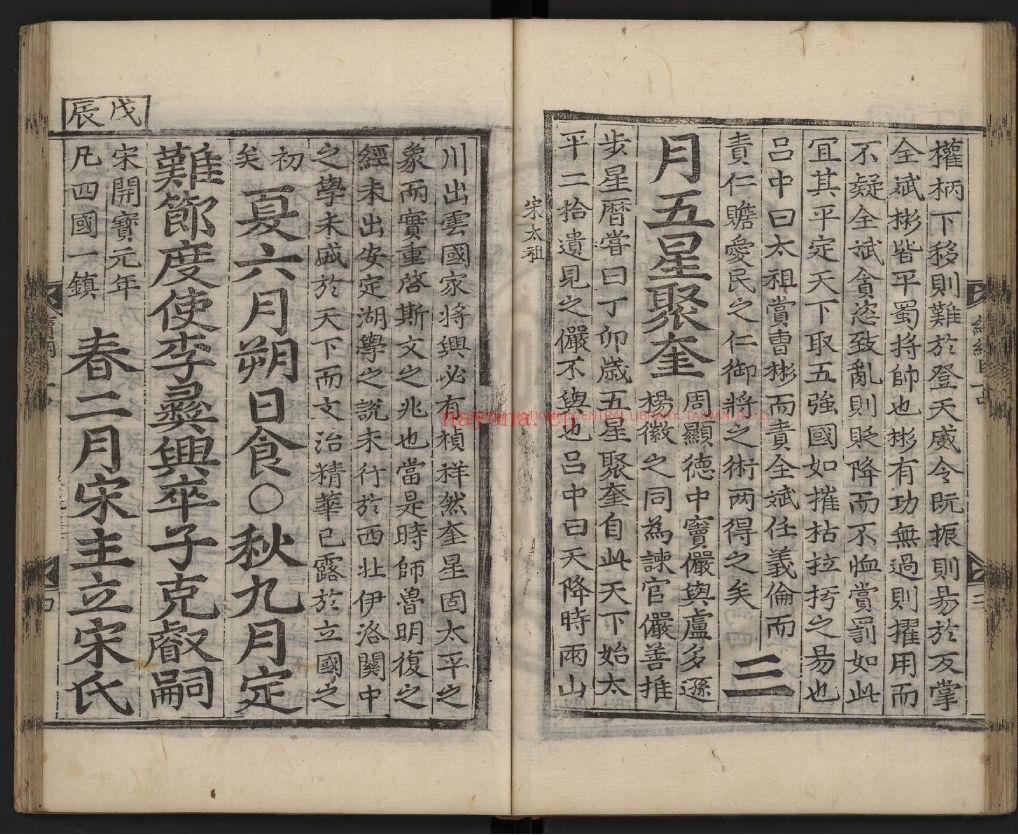 權柄下移則難於登天威令既振則易於反掌
全斌彬皆平蜀將帥也彬有功無過則擢用而
不疑全斌貪恣致亂則貶降而不恤賞罰如此
冝其平定天下取五強國如摧枯拉朽之易也
吕中曰太祖賞曹彬而責全斌任義倫而
責仁贍愛民之仁御將之術两得之矣 三
月五星聚奎 周顯德中竇儼與盧多遜
楊徽之同為諫官儼善推
步星曆嘗曰丁卯歳五星聚奎自此天下始太
平二拾遺見之儼不與也吕中曰天降時雨山
宋太祖
川出雲國家將興必有禎祥然奎星固太平之
象而實重啓斯文之兆也當是時師魯明復之
經未出安定湖學之說未行於西北伊洛關中
之學未盛於天下而文治精華已露於立國之
初矣 夏六月朔日食○秋九月定
難節度使李彛興卒子克叡嗣
戊辰
宋開寳元年
凡四國一鎮 春二月宋主立宋氏